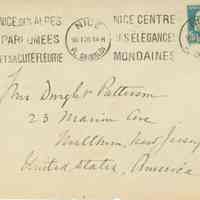 NICE DES ALPES
PARFUMÉES
ET SA CÔTE FLEURIE
NICE
PL. GRIMALDI
NICE CENTRE
DES ÉLÉGANCES
MONDAINES
Mrs Dwight Patterson
23 Marion Ave
New Jersey
United States, America